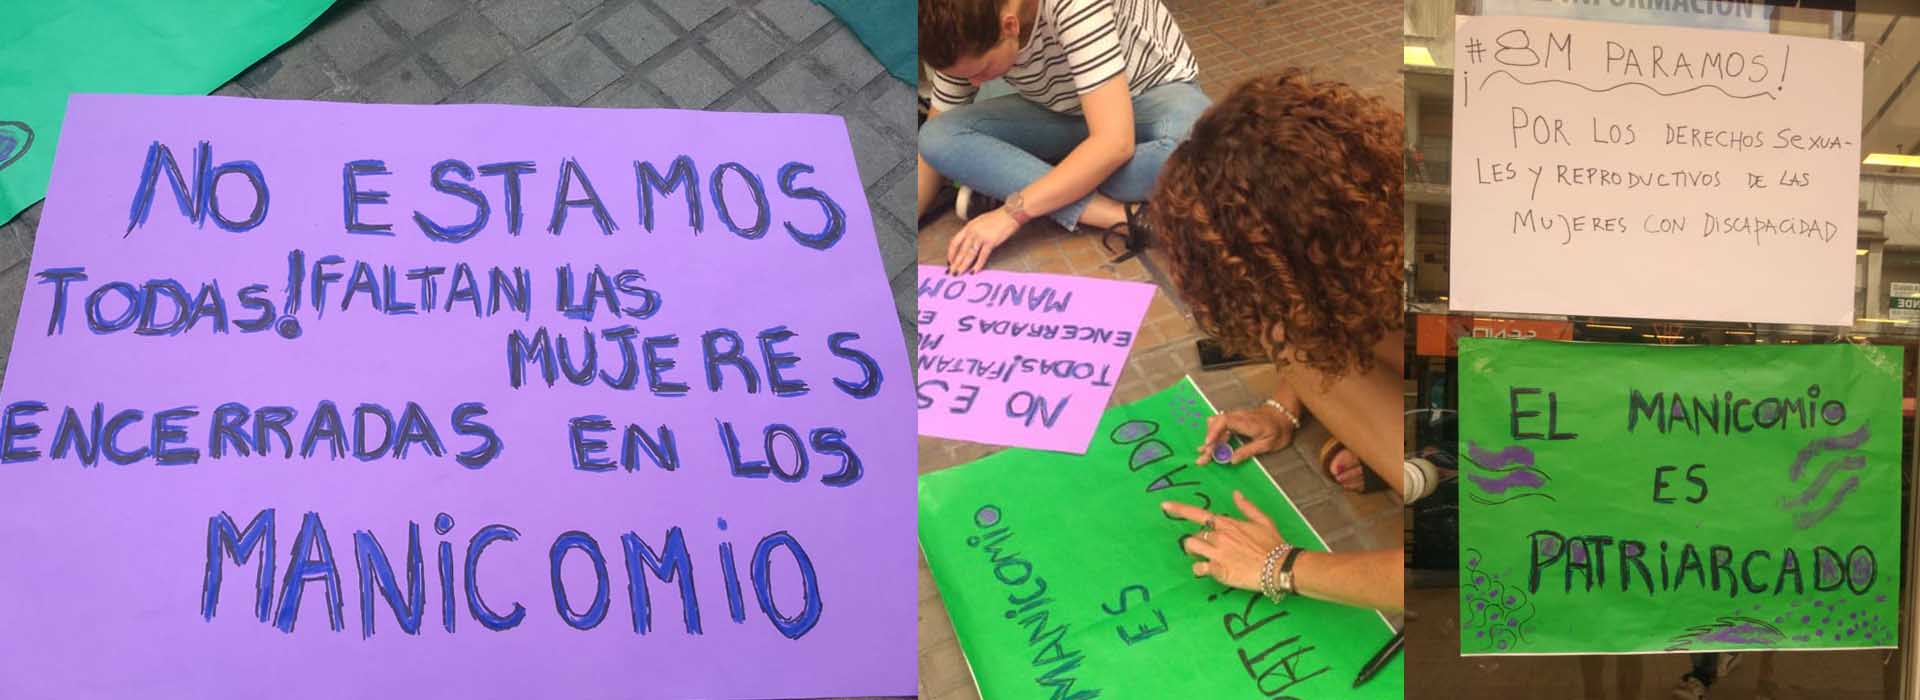 NO ESTAMOS
TODAS! FALTAN LAS
MUJERES
ENCERRADAS EN LOS
MANiCOMiO
NO ES
TODAS! FALTAN
ENCERRADAS E
MANiCOM
MANiCOMiO
ES
PATRi CADO
INFORMACIÓN
#8M PARAMOS!
¡
POR LOS DERECHOS SEXUA-
LES Y REPRODUCTIVOS DE LAS
MUJERES CON DISCAPACIDAD
EL MANiCOMiO
ES
PATRiARCADO